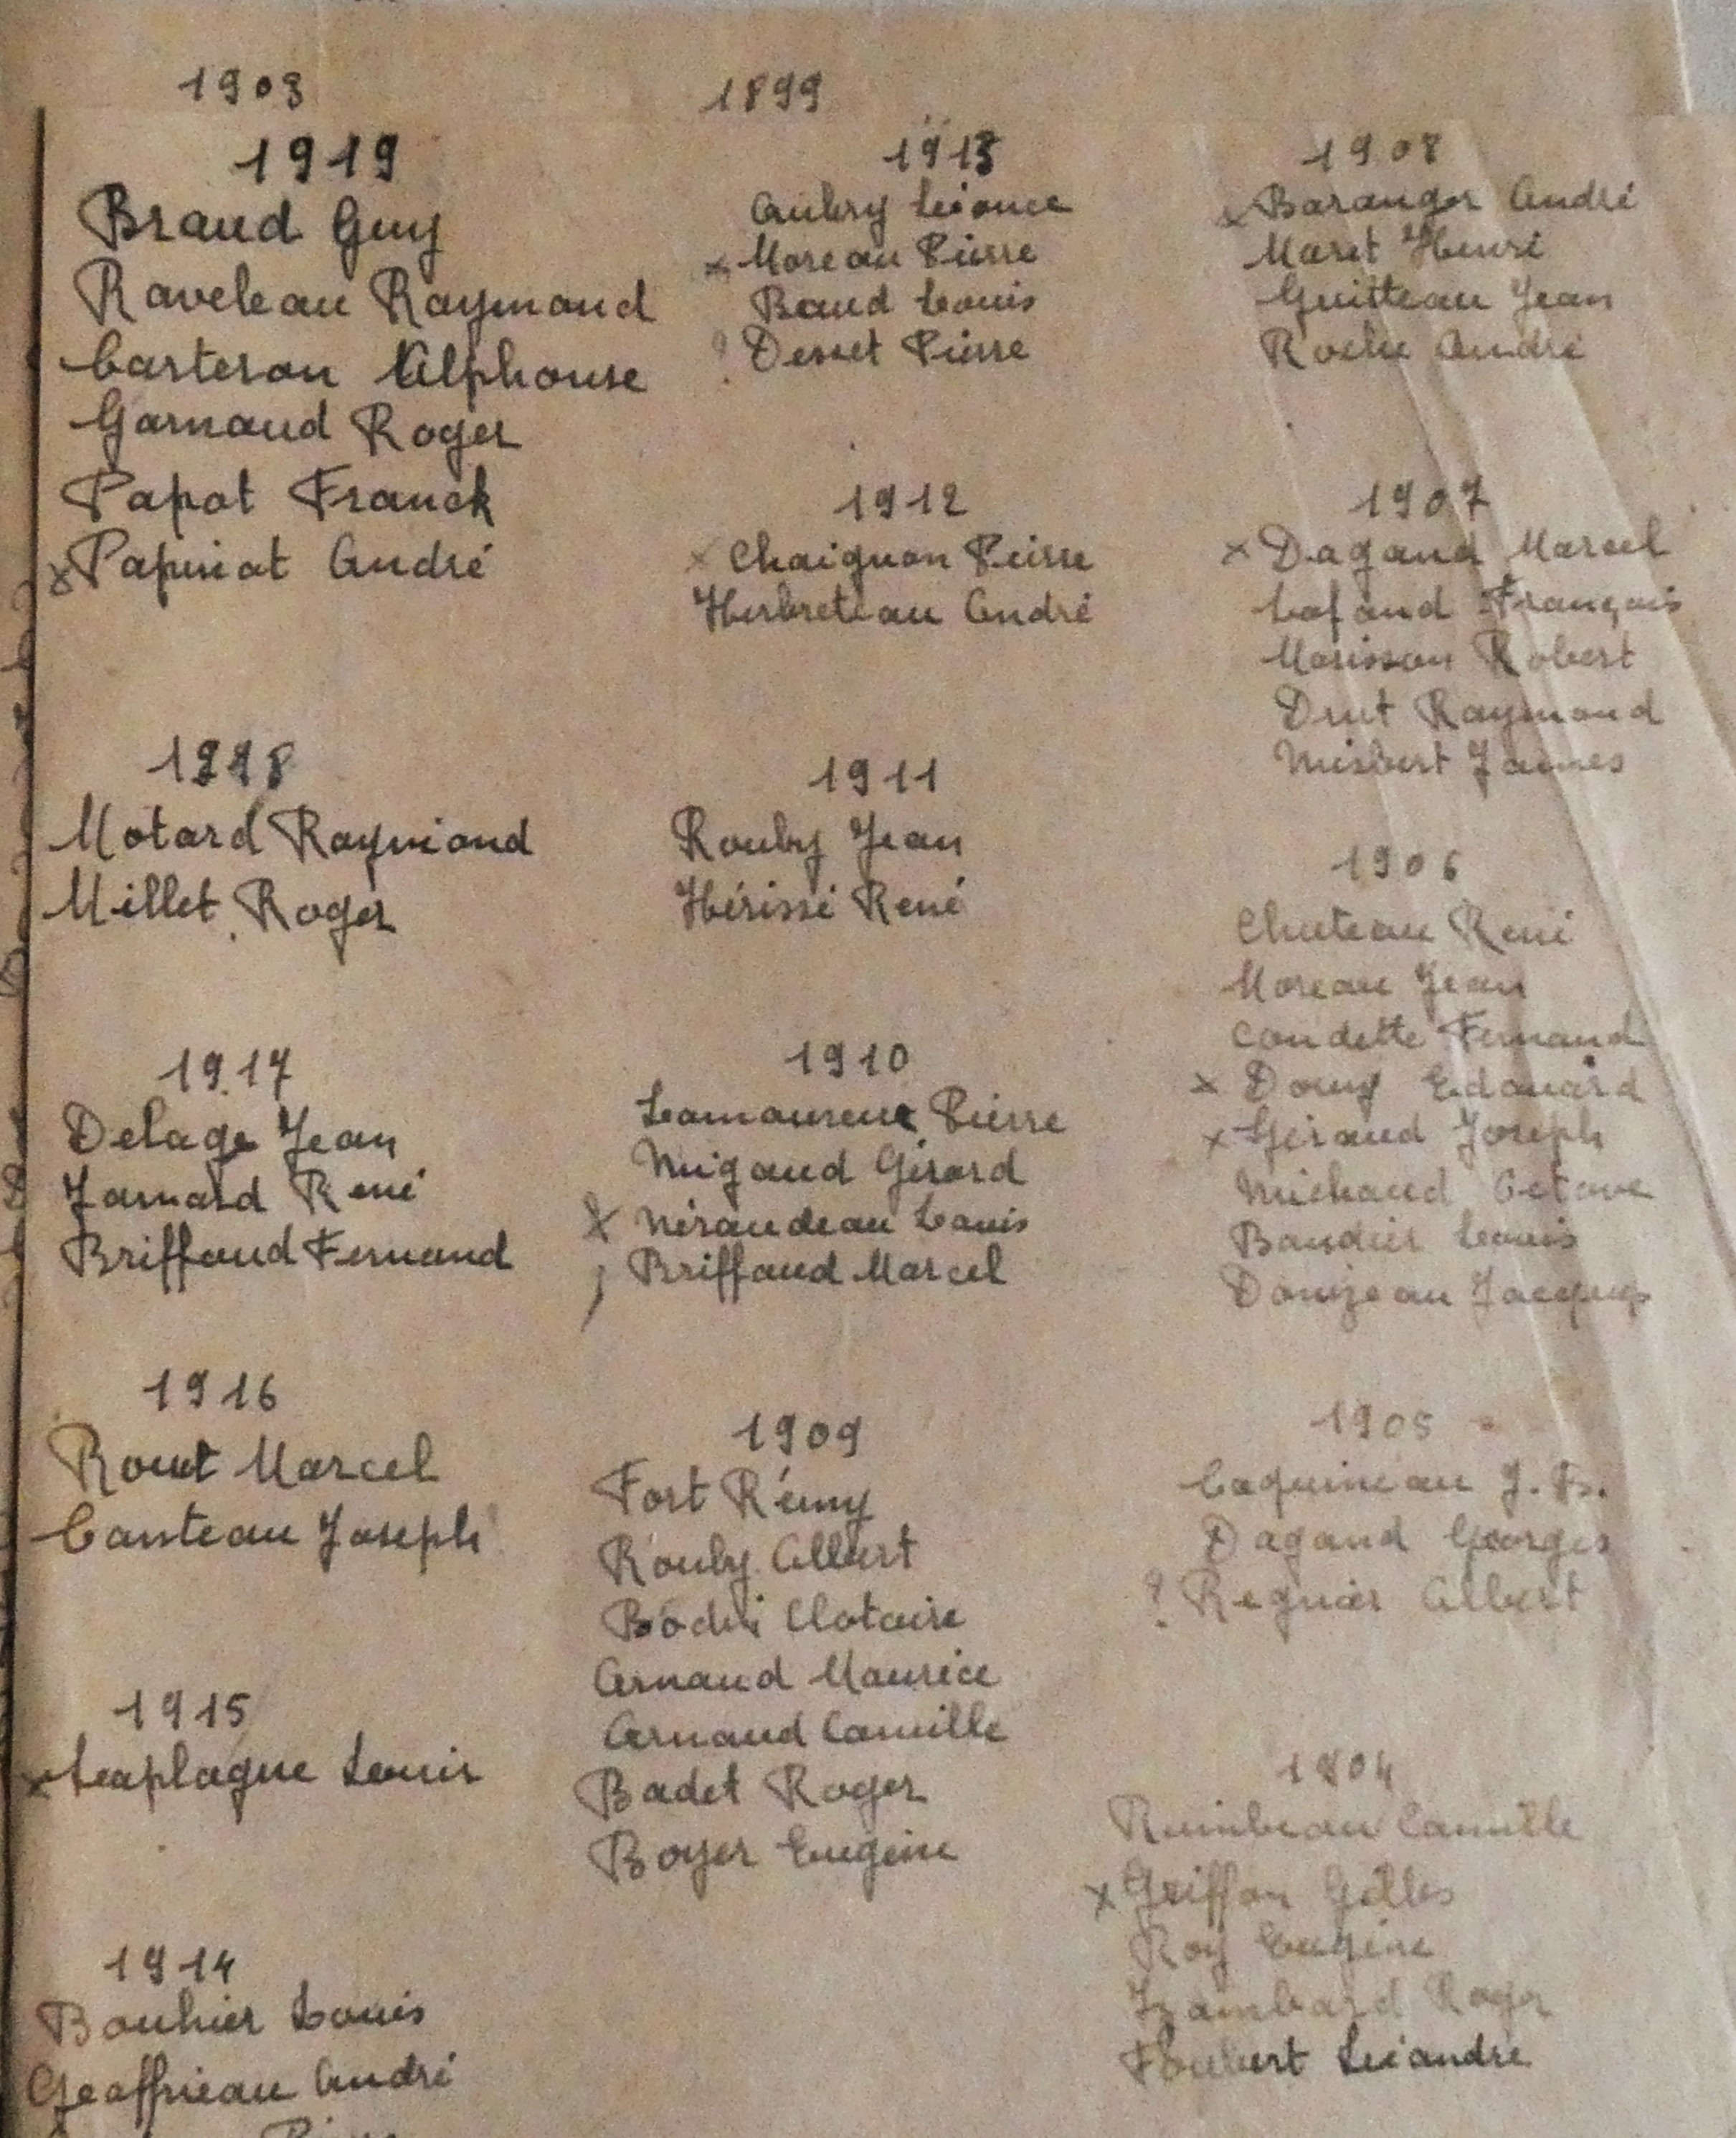 1903
1919
Braud Guy
Raveleau Raymond
Carteron Alphonse
Garnaud Roger
Papot Franck
x Papinot André
1918
Motard Raymond
Millet Roger
1917
Delage Jean
Jarnard René
Briffaud Fernand
1916
Rouet Marcel
Canteau Joseph
1915
x Laplague Louis
1914
Bouhier Louis
Geoffrieau André
1899
1913
Aubry Léonce
x Moreau Pierre
Baud Louis
? Desset Pierre
1912
x Chaignon Pierre
Herbreteau André
1911
Rouby Jean
Hérissé René
1910
Lamoureux Pierre
Migaud Gérard
x Néraudeau Louis
Briffaud Marcel
1909
Fort Rémy
Rouby Albert
Bodin Clotaire
Arnaud Maurice
Arnaud Camille
Badet Roger
Boyer Eugène
1908
x Baranger André
Maret Henri
Guitteau Jean
Roche André
1907
x Dagand Marcel
Lafand François
Morisson Robert
Drut Raymond
Misbert James
1906
Chuteau René
Moreau Jean
Condette Fernand
x Douy Edouard
x Géraud Joseph
Michaud Octave
Baudier Louis
Donjeau Jacques
1905
Caquineau J. B.
Dagand Georges
? Regnier Albert
1904
Rimbeau Camille
x Griffon Gilles
Roy Eugène
Lambard Roger
Foubert Léandre